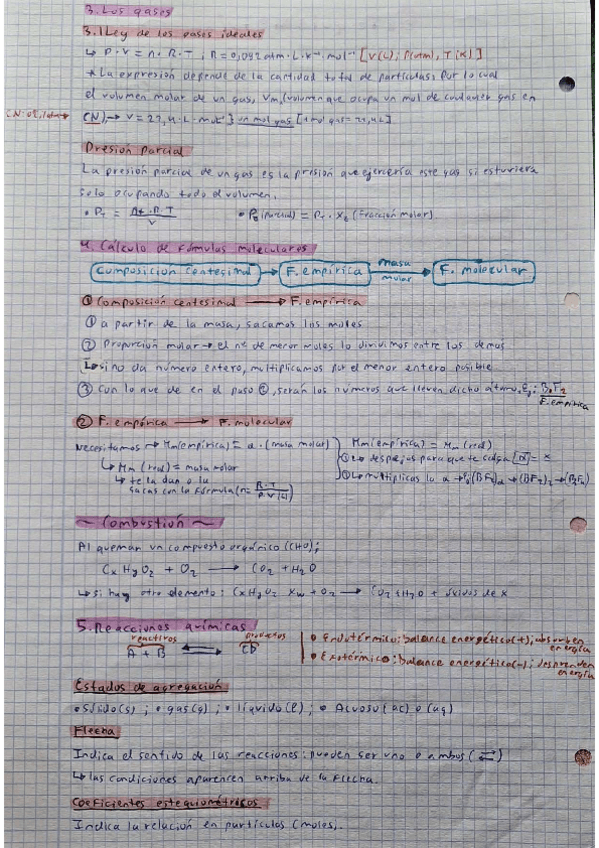 3. Los gases
3.1 Ley de los gases ideales
↳ P · V = n · R · T ; R = 0,082 atm · L · K⁻¹ · mol⁻¹ [V(L); P(atm), T(K)]
* La expresión depende de la cantidad total de partículas, por lo cual
el volumen molar de un gas, Vm, (volumen que ocupa un mol de cualquier gas en
CN: 0ºC, 1atm → CN) → V = 22,4 · L · mol⁻¹ } un mol gas [1 mol gas = 22,4L]
Presión Parcial
La presión parcial de un gas es la presión que ejercería este gas si estuviera
solo ocupando todo el volumen.
• PT = nt · R · T / V • PB (parcial) = PT · XB (Fracción molar)
4. Cálculo de fórmulas moleculares
Composición centesimal → F. empírica masa molar → F. molecular
① Composición centesimal → F. empírica
① a partir de la masa, sacamos los moles
② Proporción molar → el nº de menor moles lo dividimos entre los demás
↳ si no da número entero, multiplicamos por el menor entero posible
③ Con lo que de en el paso ②, serán los números que lleven dicho átomo. Ej: B1F2
F. empírica
② F. empírica → F. molecular
Necesitamos → Mm (empírica) = a · (masa molar) Mm (empírica) = Mm (real)
↳ Mm (real) = masa molar ① ↳ despejas para que te salga [a] = x
↳ te la dan o la ② ↳ multiplicas la a → (BF2)a → (BF2)2 → (B2F4)
sacas con la fórmula (n = R·T / P·V (L))
~ Combustión ~
Al queman un compuesto orgánico (CHO);
CxHyOz + O2 → CO2 + H2O
↳ si hay otro elemento: CxHyOz Xw + O2 → CO2 + H2O + óxidos de X
5. Reacciones químicas
reactivos productos • Endotérmico: balance energético (+), absorben energía
A + B ⇌ CD • Exotérmico: balance energético (-); desprenden energía
Estados de agregación
• sólido (s) ; • gas (g) ; • líquido (l) ; • Acuoso (ac) o (aq)
Flecha
Indica el sentido de las reacciones: pueden ser uno o ambos (⇌)
↳ las condiciones aparecen arriba de la flecha.
Coeficientes estequiométricos
Indica la relación en partículas (moles).